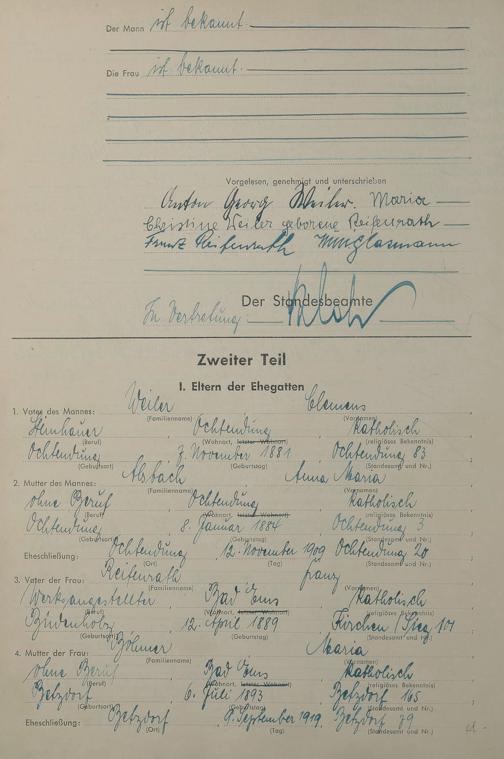 Der Mann ist bekannt.
Die Frau ist bekannt.
Vorgelesen, genehmigt und unterschrieben
Anton Georg Weiler. Maria
Christine Weiler geborene Reifenrath
Franz Reifenrath
Der Standesbeamte
In Vertretung:
Zweiter Teil
I. Eltern der Ehegatten
Weiler Clemens
1. Vater des Mannes: (Familienname) (Vornamen)
Steinhauer Ochtendung katholisch
(Beruf) (Wohnort, letzter Wohnort) (religiöses Bekenntnis)
Ochtendung 7. November 1881 Ochtendung 83
(Geburtsort) (Geburtstag) (Standesamt und Nr.)
Alsbach Anna Maria
2. Mutter des Mannes: (Familienname) (Vornamen)
ohne Beruf Ochtendung katholisch
(Beruf) (Wohnort, letzter Wohnort) (religiöses Bekenntnis)
Ochtendung 8. Januar 1884 Ochtendung 3
(Geburtsort) (Geburtstag) (Standesamt und Nr.)
Eheschließung: Ochtendung 12. November 1909 Ochtendung 20
(Ort) (Tag) (Standesamt und Nr.)
Reifenrath Franz
3. Vater der Frau: (Familienname) (Vornamen)
Werksangestellter Bad Ems katholisch
(Beruf) (Wohnort, letzter Wohnort) (religiöses Bekenntnis)
12. April 1889 Kirchen/Sieg 101
(Geburtsort) (Geburtstag) (Standesamt und Nr.)
Böhmer Maria
4. Mutter der Frau: (Familienname) (Vornamen)
ohne Beruf Bad Ems katholisch
(Beruf) (Wohnort, letzter Wohnort) (religiöses Bekenntnis)
Betzdorf 6. Juli 1893 Betzdorf 165
(Geburtsort) (Geburtstag) (Standesamt und Nr.)
Eheschließung: Betzdorf 9. September 1919 Betzdorf 89
(Ort) (Tag) (Standesamt und Nr.)